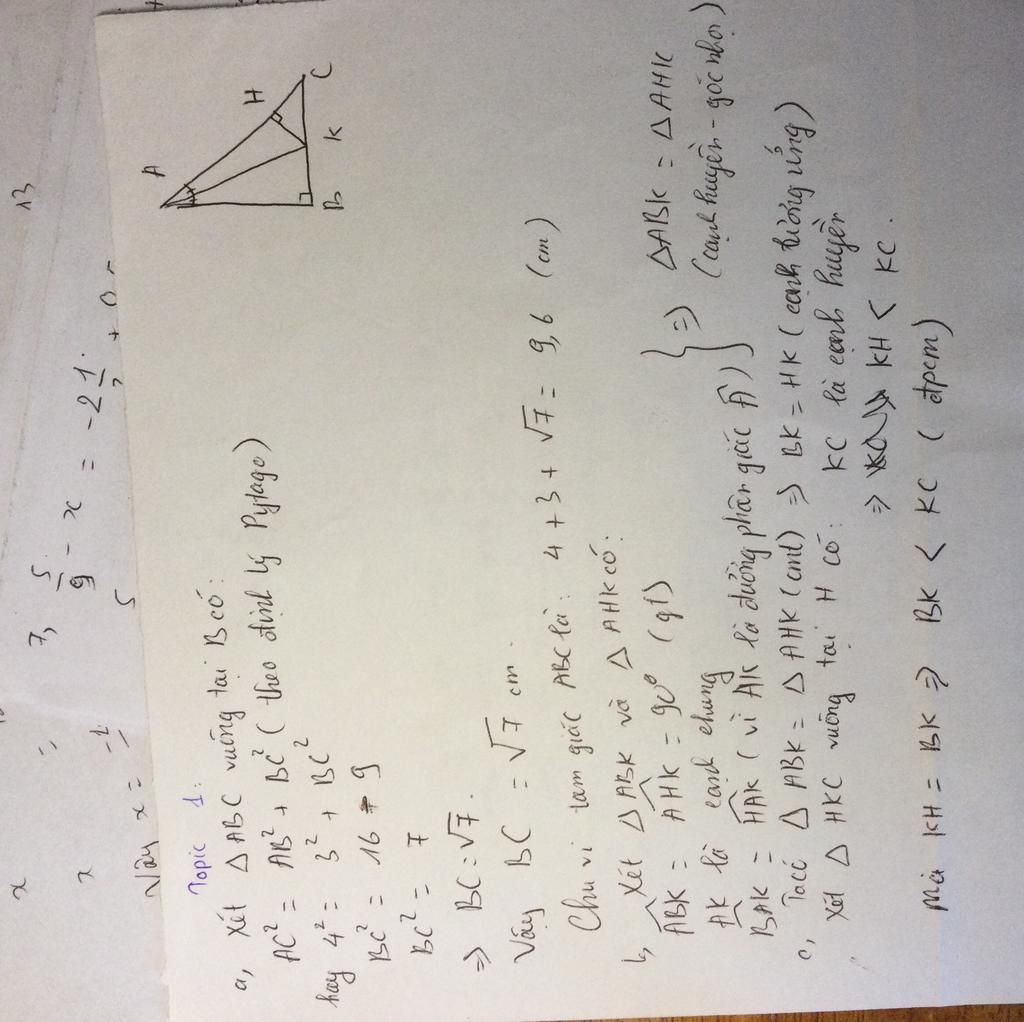 13
x
=
7, 5/9 - x = -2 1/
+
x
-1
5
Vậy x =
Topic 1:
A
H
B
K
C
a, Xét △ ABC vuông tại B có:
AC² = AB² + BC² (theo định lý Pytago)
hay 4² = 3² + BC²
BC² = 16 - 9
BC² = 7
=> BC = √7.
Vậy BC = √7 cm.
Chu vi tam giác ABC là: 4 + 3 + √7 = 9,6 (cm)
b, Xét △ ABK và △ AHK có:
ABK = AHK = 90° (gt)
AK là cạnh chung
BAK = HAK (vì AK là đường phân giác Â)
} => △ABK = △AHK
(cạnh huyền - góc nhọn)
c, Ta có △ ABK = △ AHK (cmt) => BK = HK (cạnh tương ứng)
Xét △ HKC vuông tại H có: KC là cạnh huyền
=> KH < KC.
Mà KH = BK => BK < KC (đpcm)